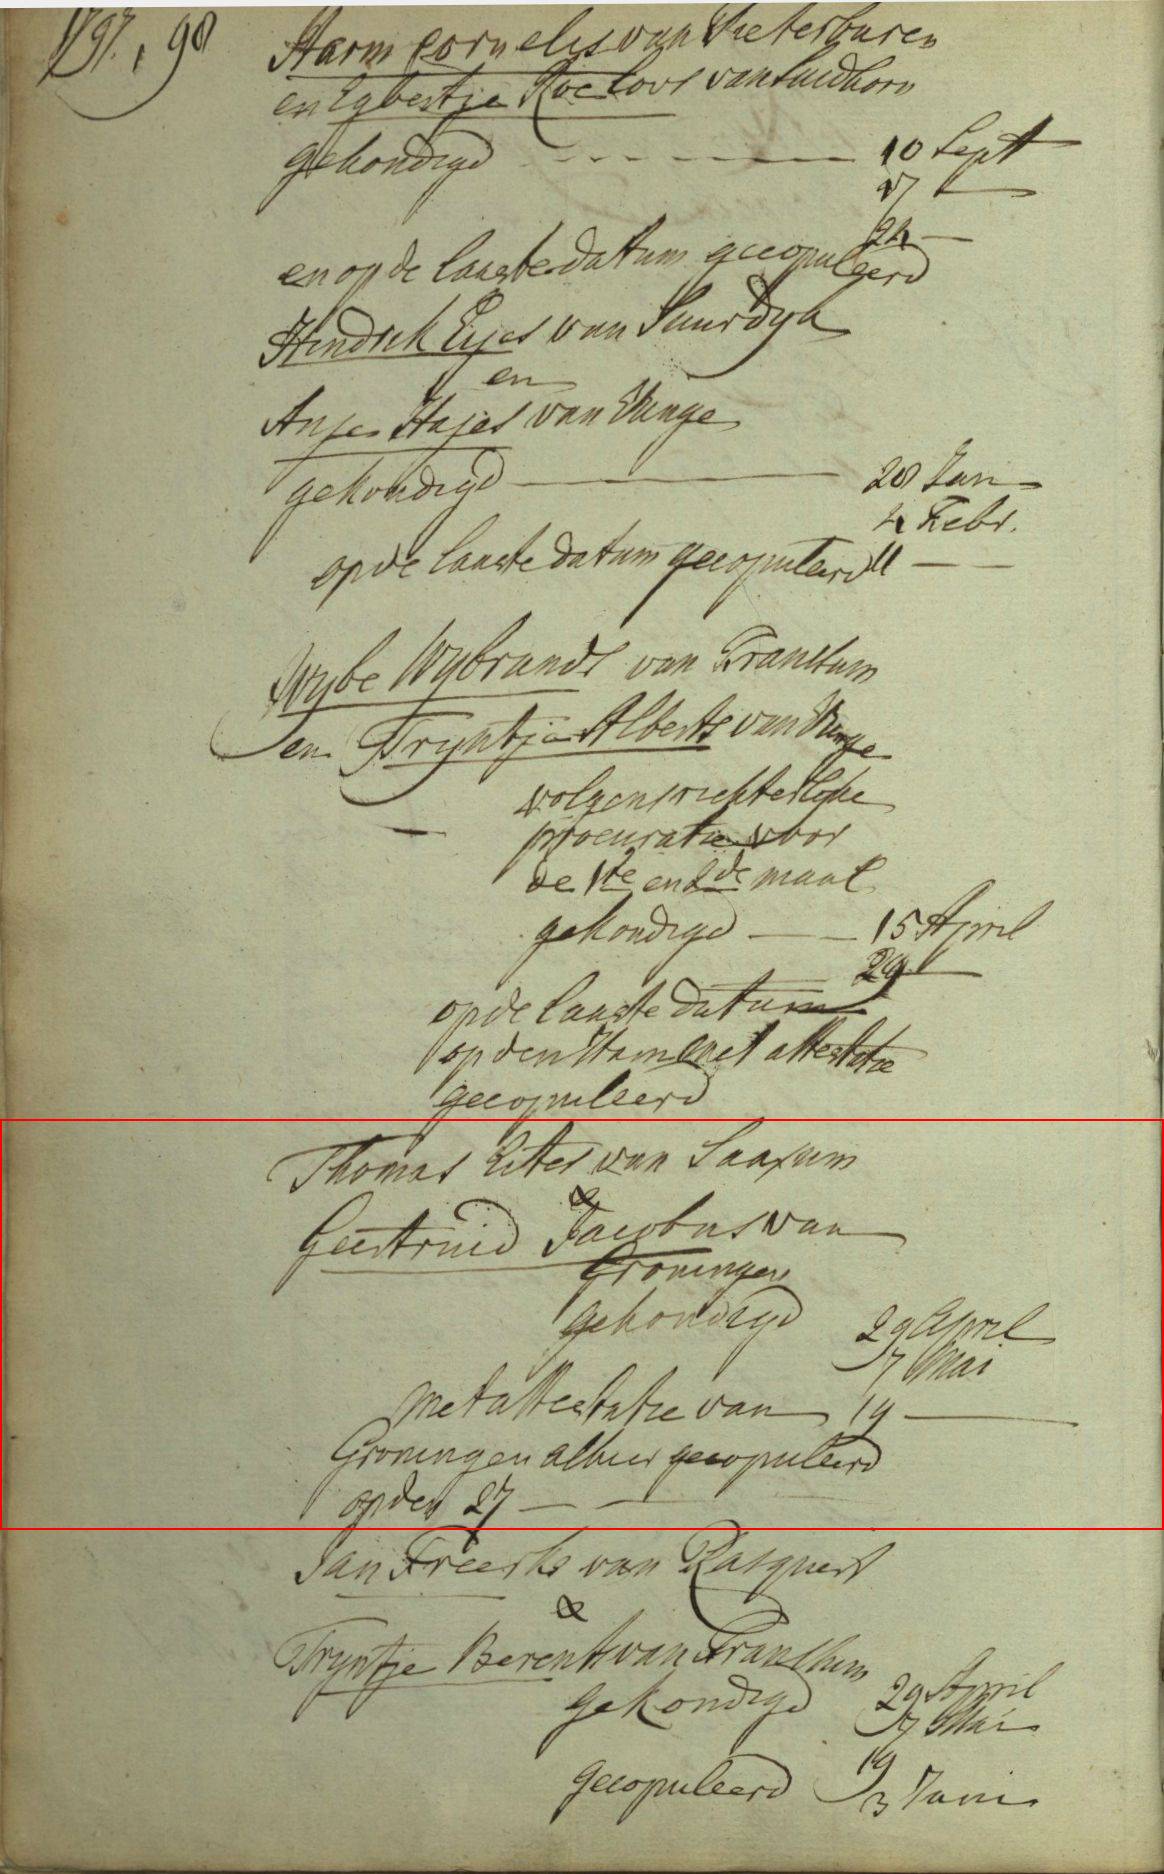 1797, 98
Harm Cornelis van Pieterburen
en Egbertje Roelovs van Suidhorn
gekondigd 10 Sept
17 —
24 —
en op de laaste datum gecopuleerd
Hendrik Eyes van Saurdyk
en
Anje Hajes van
gekondigd — 28 Jan
4 Febr.
op de laaste datum gecopuleerd 11 —
Wybe Wybrands van Fransum
en Tryntje Alberts van
volgens richterlyke
procuratie voor
de 1ste en 2de maal
gekondigd — 15 April
29 —
op de laaste datum
op den Ham met attestatie
gecopuleerd
Thomas Eites van Saaxum
&
Geertruid Jacobus van
Groningen
gekondigd 29 April
7 Mai
met attestatie van 19 —
Groningen alhier gecopuleerd
op den 27 —
Jan Freerks van Rasquert
&
Tryntje Berents van Fransum
gekondigd 29 April
7 Mai
19
gecopuleerd 3 Juni